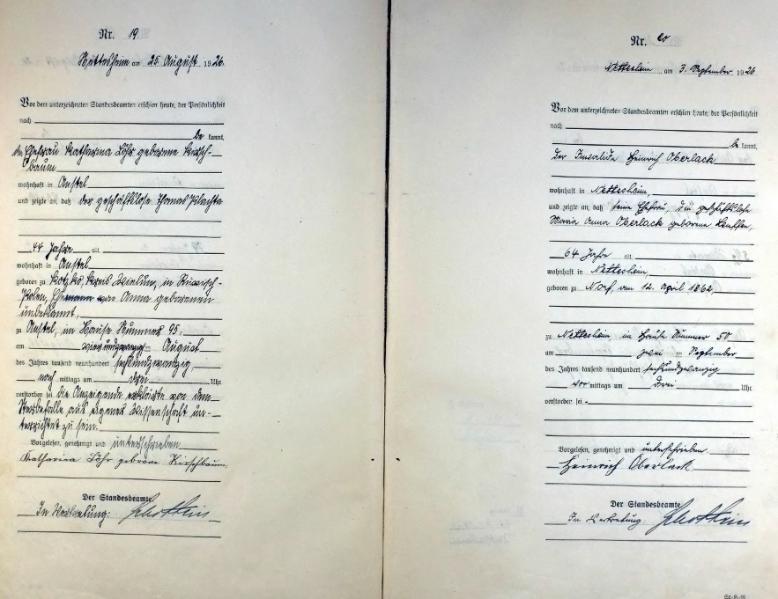 Nr. 19
Nettesheim am 25 August 1926
Vor dem unterzeichneten Standesbeamten erschien heute, der Persönlichkeit
nach
be kannt,
die Ehefrau Katharina Löhr geborene Kirsch-
baum
wohnhaft in Anstel
und zeigte an, daß der geschäftslose Thomas
44 Jahre alt
wohnhaft in Anstel
geboren zu in Russisch-
Polen, Ehemann von Anna geborenen
unbekannt,
zu Anstel, in Hause Nummer 95,
am vierundzwanzig August
des Jahres tausend neunhundert sechsundzwanzig
nach mittags um drei Uhr
verstorben sei. Die Anzeigende erklärte von dem
Sterbefalle aus eigener Wissenschaft un-
terrichtet zu sein.
Vorgelesen, genehmigt und unterschrieben
Katharina Löhr geborene Kirschbaum
Der Standesbeamte.
In Vertretung:
Nr. 20
Nettesheim am 3. September 1926
Vor dem unterzeichneten Standesbeamten erschien heute, der Persönlichkeit
nach
be kannt,
der Invalide Heinrich Oberlack
wohnhaft in Nettesheim,
und zeigte an, daß seine Ehefrau, die geschäftslose
Maria Anna Oberlack geborene
64 Jahre alt
wohnhaft in Nettesheim,
geboren zu Norf, am 12. April 1862,
zu Nettesheim in Hause Nummer 50
am zwei ten September
des Jahres tausend neunhundert sechsundzwanzig
vor mittags um drei Uhr
verstorben sei.
Vorgelesen, genehmigt und unterschrieben
Heinrich Oberlack
Der Standesbeamte.
In Vertretung: